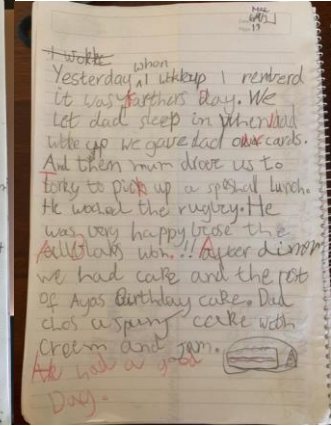 I wokke
Yesterday when I wkeup I rembrerd
it was farthers day. We
Let dad sleep in when dad
woke up we gave dad our cards.
And them mum drove us to
Torky to pick up a speshall lunch.
He woched the rugby. He
was very happy becose the
All Blaks won.!! After dinner
we had cake and the rest
of Ayas Birthday cake. Dad
chos a spung cake with
Creem and Jam.
had a good
Day.